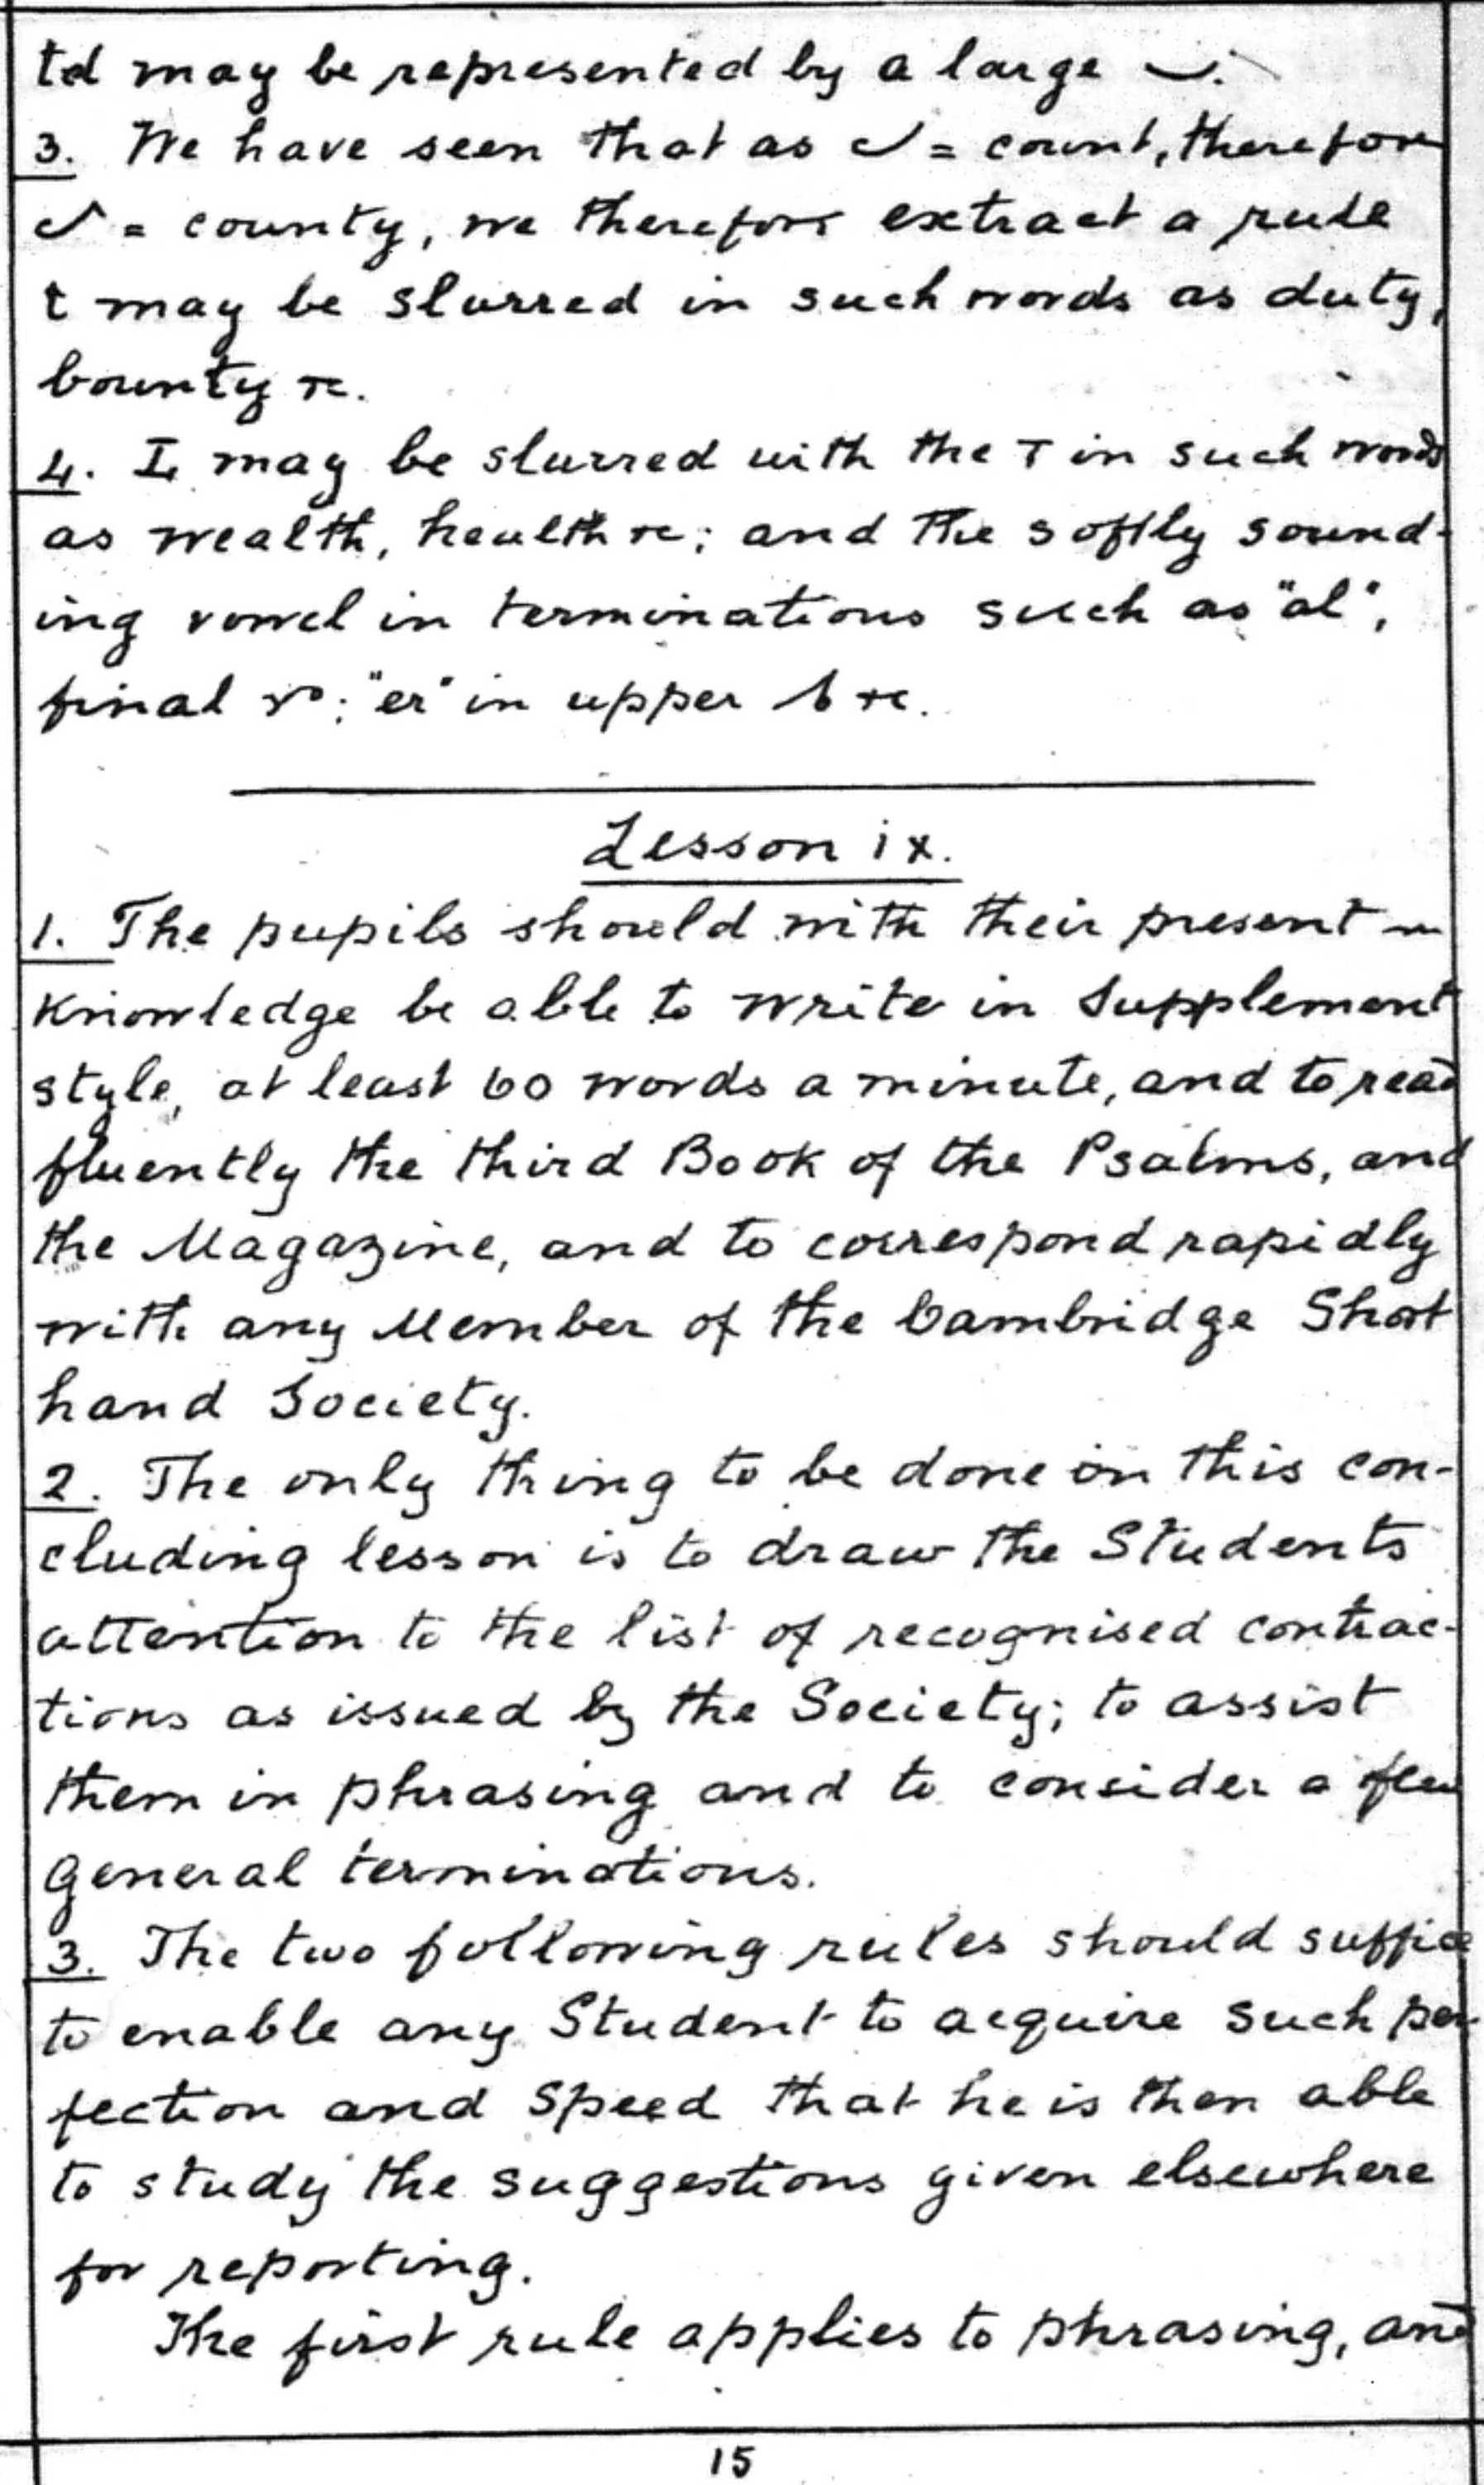 td may be represented by a large
3. We have seen that as = count, therefore
= county, we therefore extract a rule
t may be slurred in such words as duty,
bounty &c.
4. I may be slurred with the T in such words
as wealth, health &c; and the softly sound-
ing vowel in terminations such as "al",
final ; "er" in upper &c.
Lesson ix.
1. The pupils should with their present
knowledge be able to write in Supplement
style, at least 60 words a minute, and to read
fluently the third Book of the Psalms, and
the Magazine, and to correspond rapidly
with any Member of the Cambridge Short
hand Society.
2. The only thing to be done in this con-
cluding lesson is to draw the Students
attention to the list of recognised contrac-
tions as issued by the Society; to assist
them in phrasing and to consider a few
general terminations.
3. The two following rules should suffice
to enable any Student to acquire such per-
fection and speed that he is then able
to study the suggestions given elsewhere
for reporting.
The first rule applies to phrasing, and
15